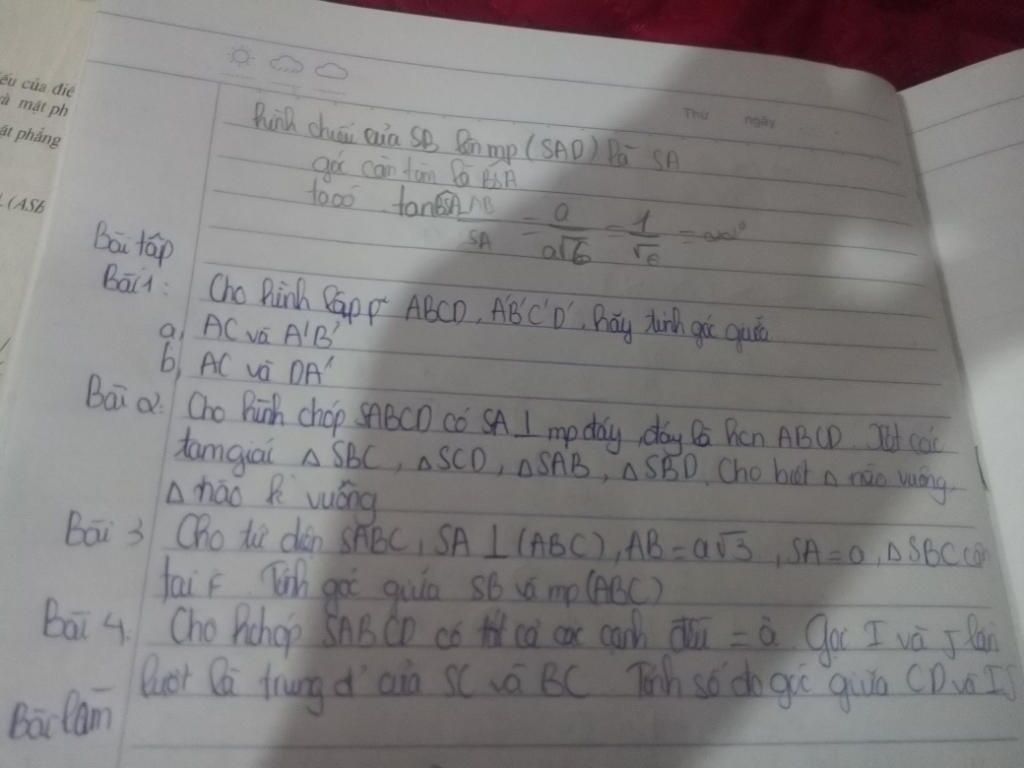 ếu của điể
và mặt ph
ặt phẳng
(ASB
Thứ ngày
hình chiếu của SB lên mp (SAD) là SA
góc cần tìm là BSA
ta có tan BSA AB/SA = a/a√6 = 1/√6 =
Bài tập
Bài 1: Cho hình lập p² ABCD, A'B'C'D'. hãy tính góc giữa
a, AC và A'B'
b, AC và DA'
Bài 2: Cho hình chóp SABCD có SA ⊥ mp đáy, đáy là hcn ABCD. Xét các
tam giái △ SBC, △SCD, △SAB, △SBD. Cho biết △ nào vuông
△ nào k vuông
Bài 3 Cho tứ diện SABC, SA ⊥ (ABC), AB = a√3, SA = a, △ SBC cân
tại Tính góc giữa SB và mp (ABC)
Bài 4: Cho hchóp SABCD có tất cả các cạnh đều = a. Gọi I và J lần
lượt là trung đ' của SC và BC Tính số đo góc giữa CD và IJ
Bài làm